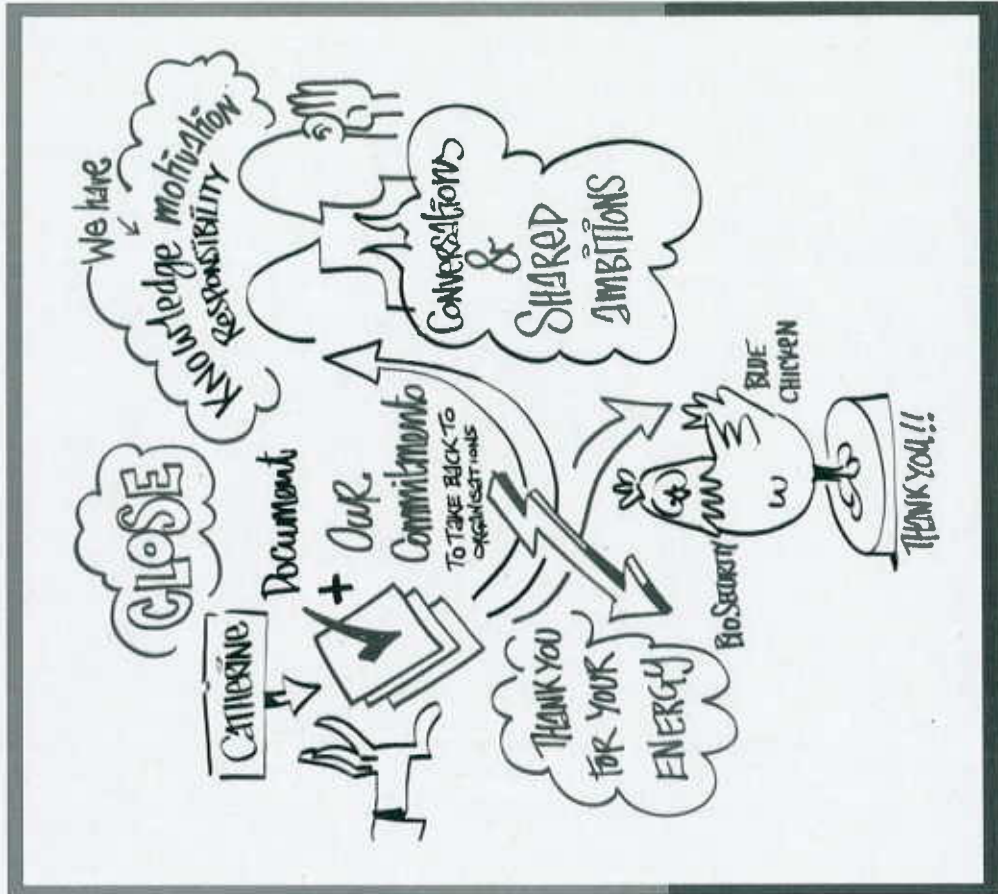 CLOSE
CATHERINE
Document
+ OUR
Commitments
TO TAKE BACK TO
ORGANISATIONS
We have
KNOWledge motivation
RESPONSIBILITY
CONVERSATIONS
&
SHARED
AMBITIONS
THANK YOU
FOR YOUR
ENERGY
BIOSECURITY
BLUE
CHICKEN
THANK YOU!!